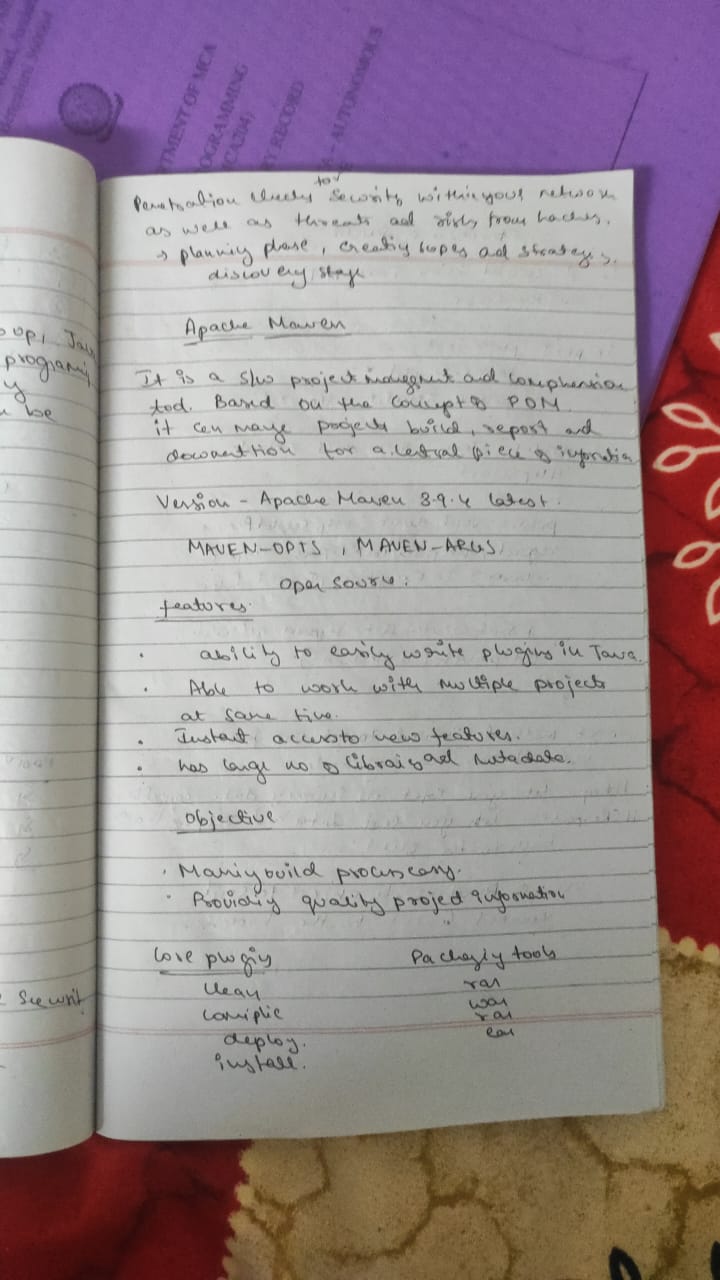 TMENT OF MCA
OGRAMMING
RY RECORD
- AUTONOMOUS
for
Penetration checks security within your network
as well as threats and risks from hackers.
→ planning phase, creating scopes and strategy,
discovery stage
Apache Maven
It is a s/w project managment and comprehension
tool. Based on the concept of POM
it can manage projects build, report and
documention for a central piece of information
Version - Apache Maven 3.9.4 latest.
MAVEN-OPTS, MAVEN-ARGS
open source.
features.
. ability to easily write plugins in Java.
. Able to work with multiple projects
at same time.
. Instant access to new features.
. has large no of libraries and metadata.
Objective
. Making build process easy.
. Providing quality project information
Core plugins Packaging tools
clean rar
compile war
rar
deploy. ear
install.
oop, Java
programing
y
be